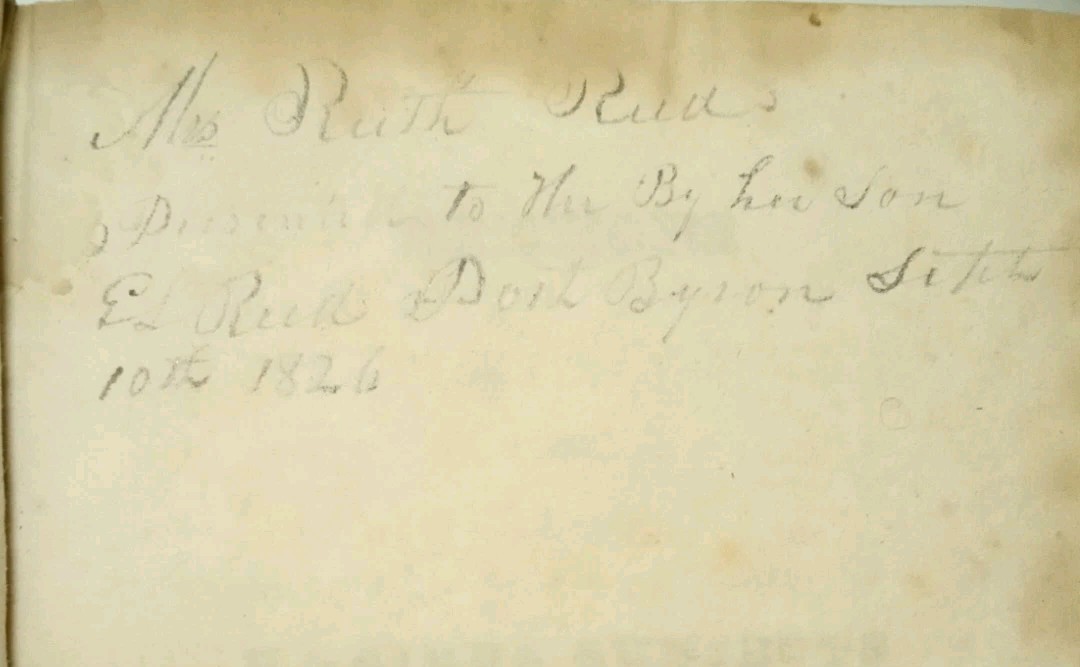 Mrs Ruth Reeds
Presented to Her By her Son
E L Reed Port Byron Sept
10th 1826